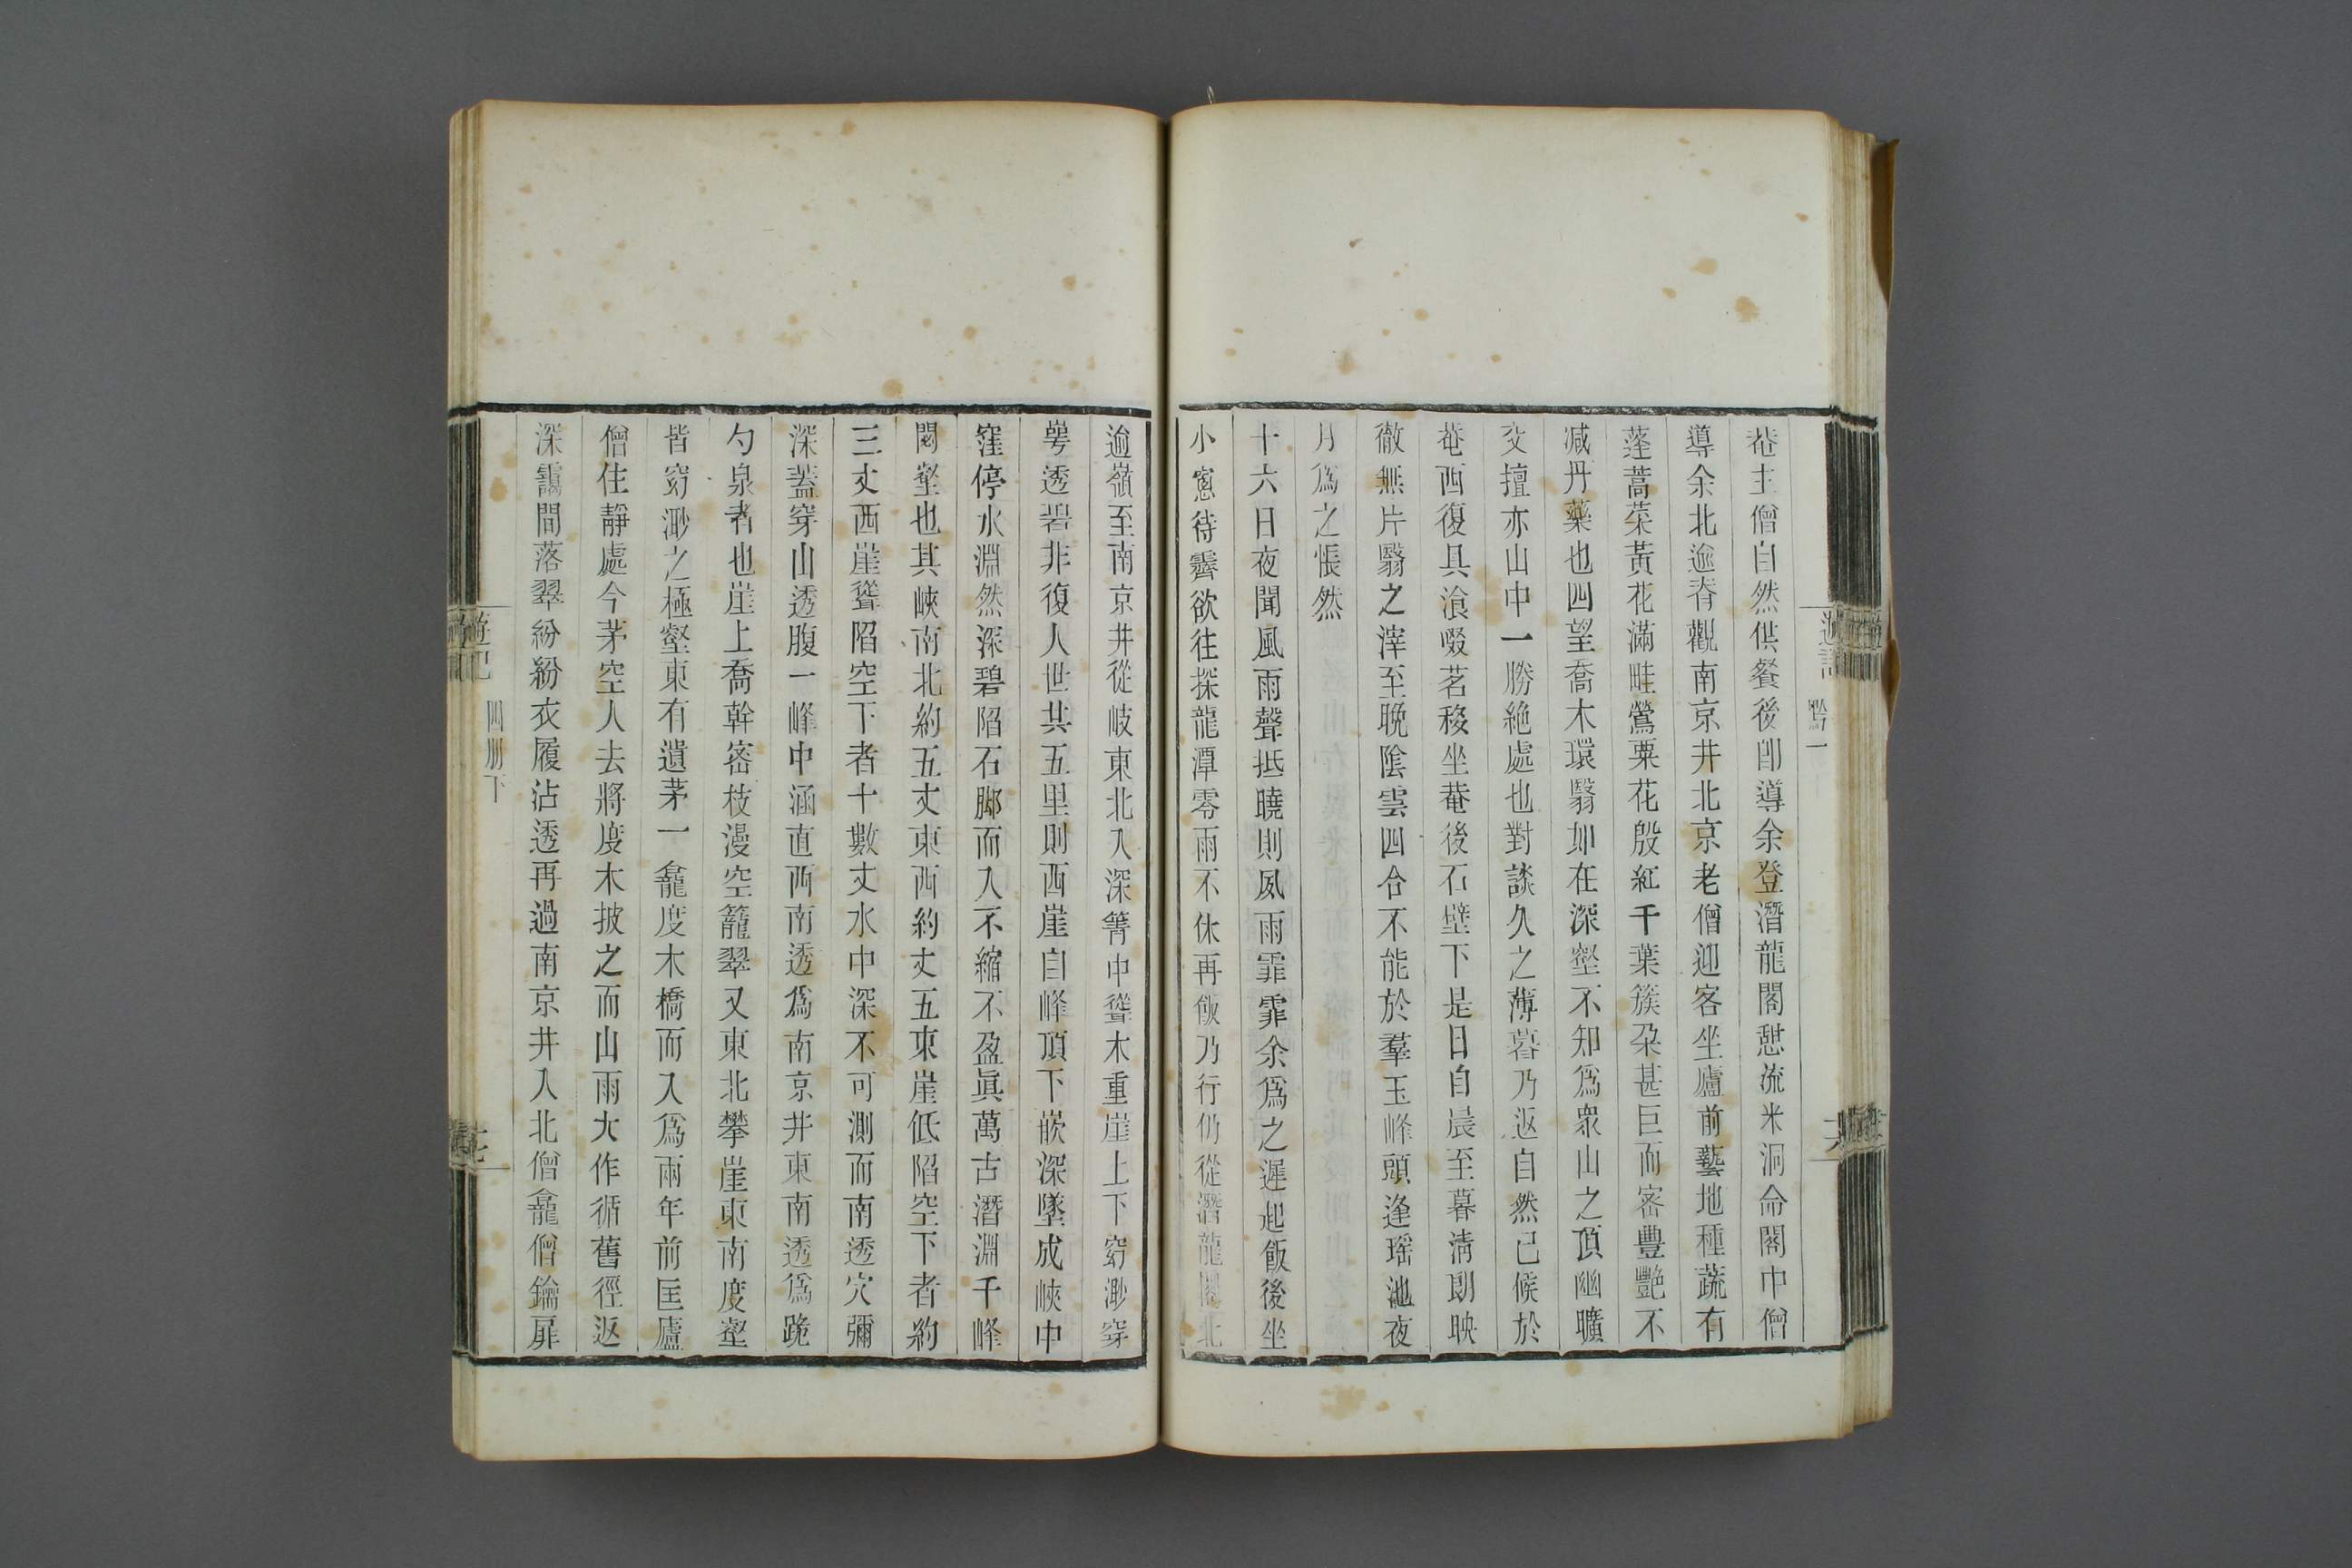 遊記
黔一
菴主僧自然供餐後卽導余登潛龍閣憇流米洞命閣中僧
導余北逾脊觀南京井北京老僧迎客坐廬前藝地種蔬有
蓬蒿菜黃花滿畦鶯粟花殷紅千葉簇朶甚巨而密豐艷不
减丹藥也四望喬木環翳如在深壑不知爲衆山之頂幽曠
交擅亦山中一勝絶處也對談久之薄暮乃返自然已候於
菴西復具飡啜茗移坐菴後石壁下是日自晨至暮淸朗映
徹無片翳之滓至晩陰雲四合不能於羣玉峰頭逢瑶池夜
月爲之悵然
十六日夜聞風雨聲抵曉則夙雨霏霏余爲之遲起飯後坐
小窻待霽欲往探龍潭零雨不休再飯乃行仍從潛龍閣北
逾嶺至南京井從岐東北入深箐中聳木重崖上下窈渺穿
崿透碧非復人世共五里則西崖自峰頂下嵌深墜成峽中
窪停水淵然深碧陷石脚而入不縮不盈眞萬古潛淵千峰
閟壑也其峽南北約五丈東西約丈五東崖低陷空下者約
三丈西崖聳陷空下者十數丈水中深不可測而南透穴彌
深蓋穿山透腹一峰中涵直西南透爲南京井東南透爲跪
勺泉者也崖上喬幹密枝漫空籠翠又東北攀崖東南度壑
皆窈渺之極壑東有遺茅一龕度木橋而入爲兩年前匡廬
僧住靜處今茅空人去將度木披之而山雨大作循舊徑返
深靄間落翠紛紛衣履沾透再過南京井入北僧龕僧鑰扉
遊記
四册下